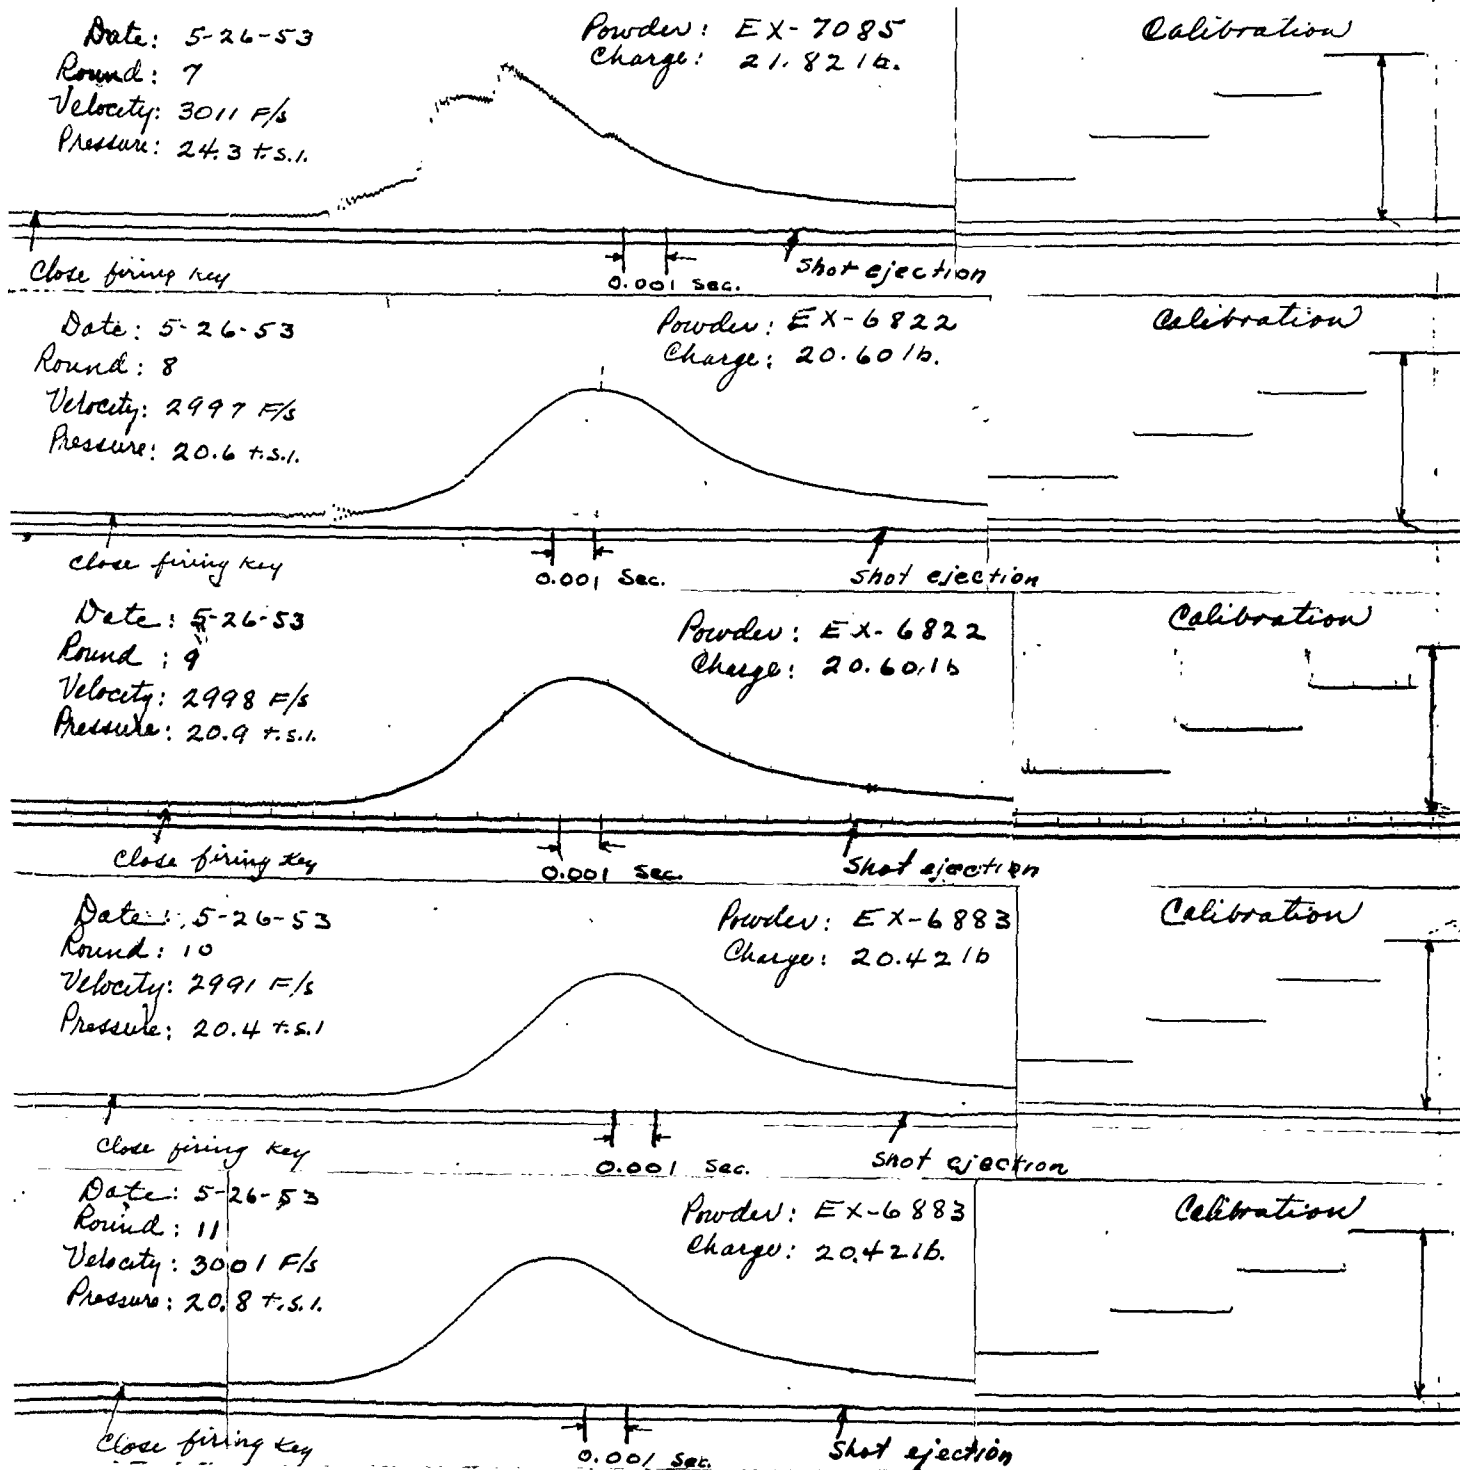 Date: 5-26-53
Round: 7
Velocity: 3011 F/s
Pressure: 24.3 t.s.i.
Powder: EX-7085
Charge: 21.82 lb.
Calibration
Close firing key
0.001 Sec.
Shot ejection
Date: 5-26-53
Round: 8
Velocity: 2997 F/s
Pressure: 20.6 t.s.i.
Powder: EX-6822
Charge: 20.60 lb.
Calibration
Close firing key
0.001 Sec.
Shot ejection
Date: 5-26-53
Round: 9
Velocity: 2998 F/s
Pressure: 20.9 t.s.i.
Powder: EX-6822
Charge: 20.60 lb
Calibration
Close firing key
0.001 Sec.
Shot ejection
Date: 5-26-53
Round: 10
Velocity: 2991 F/s
Pressure: 20.4 t.s.i
Powder: EX-6883
Charge: 20.42 lb
Calibration
Close firing key
0.001 Sec.
Shot ejection
Date: 5-26-53
Round: 11
Velocity: 3001 F/s
Pressure: 20.8 t.s.i.
Powder: EX-6883
Charge: 20.42 lb.
Calibration
Close firing key
0.001 Sec.
Shot ejection